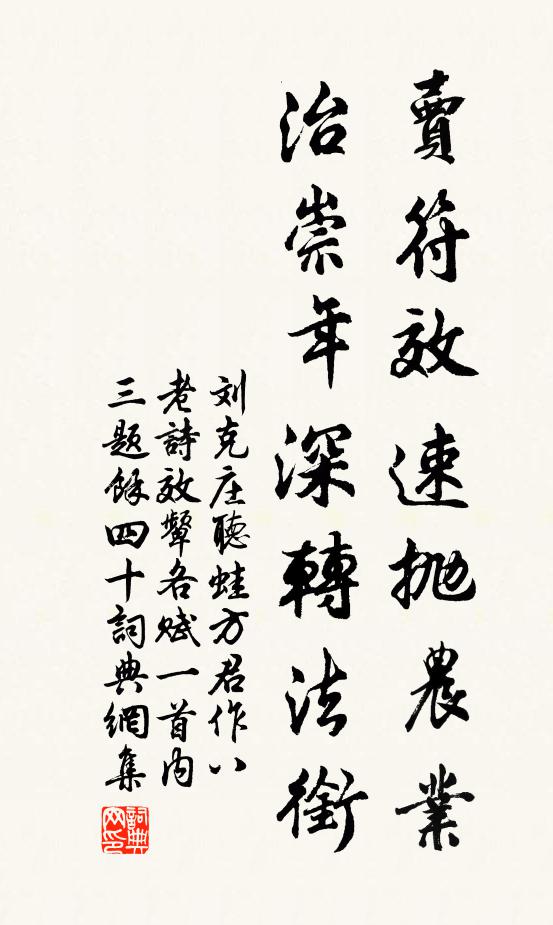 賣符效速抛農業
治崇年深轉法銜
刘克庄聽蛙方君作八
老詩效顰各赋一首内
三題餘四十詞典網集
詞典网印